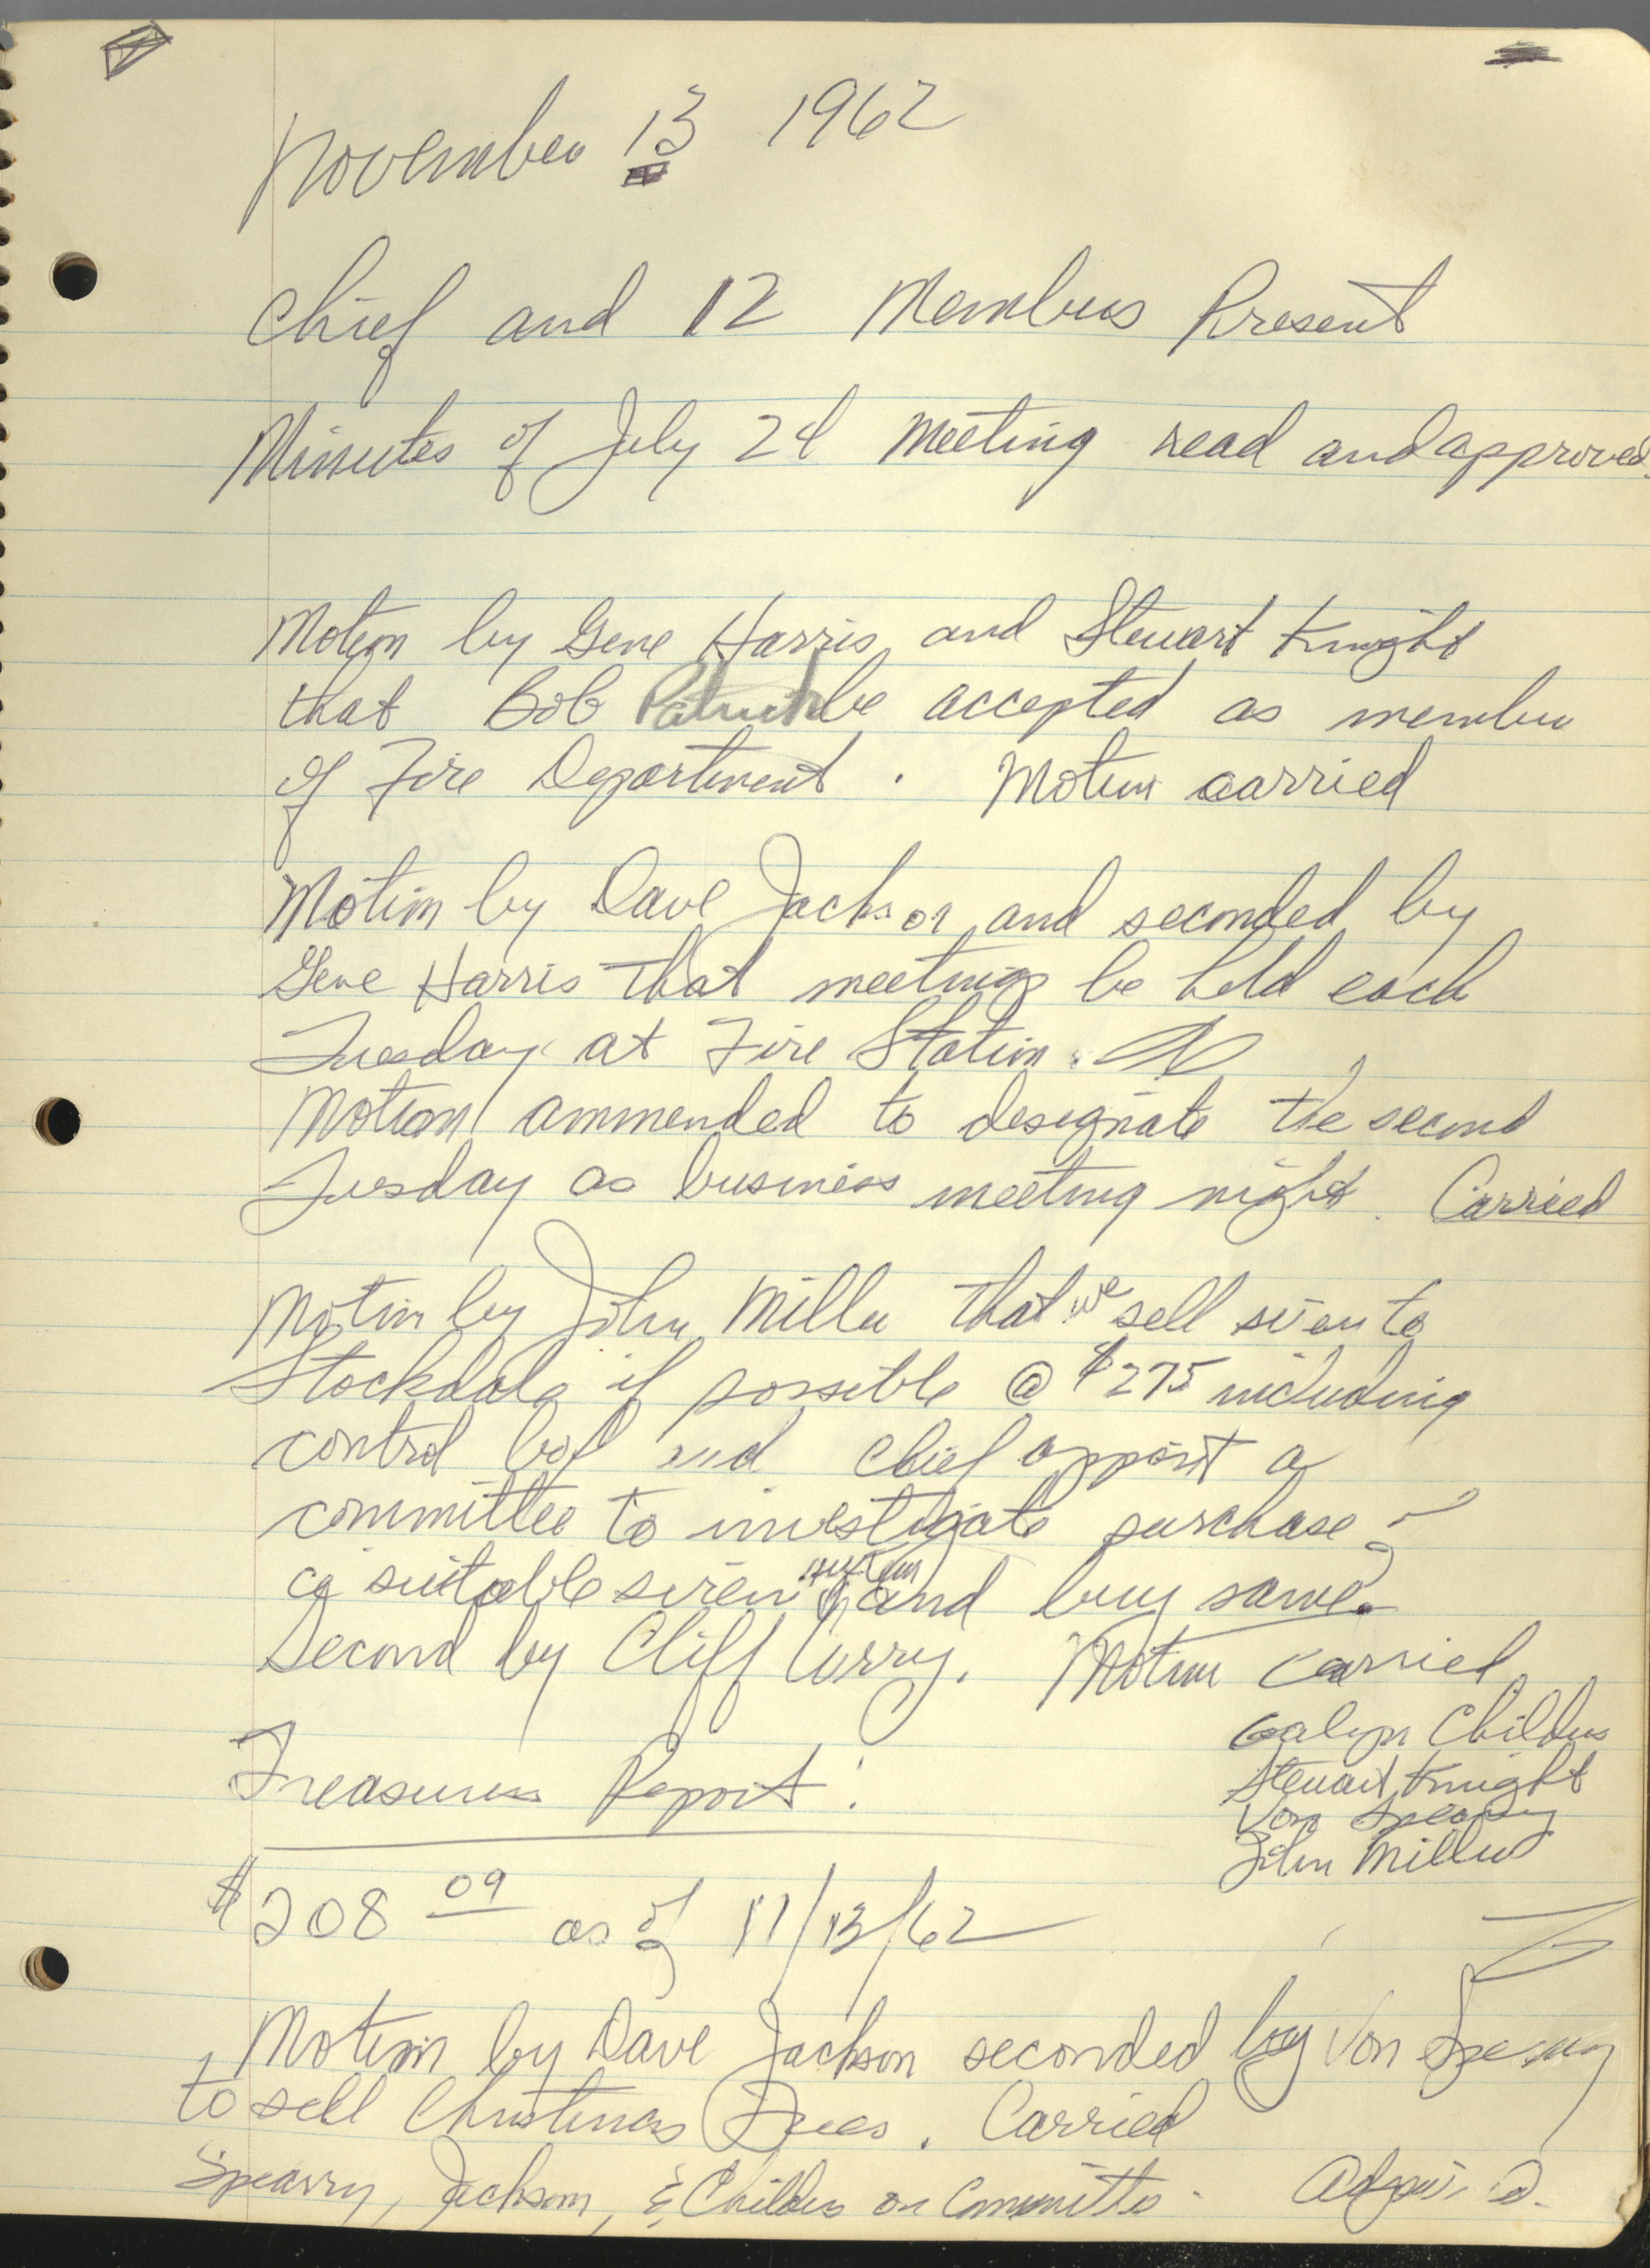 November 13 1962
Chief and 12 Members Present
Minutes of July 24 Meeting read and approved.
Motion by Gene Harris and Stewart Knight
that Bob Patrick be accepted as member
of Fire Department. Motion carried
Motion by Dave Jackson and seconded by
Gene Harris that meetings be held each
Tuesday at Fire Station.
Motion ammended to designate the second
Tuesday as business meeting night. Carried
Motion by John Miller that we sell siren to
Stockdale if possible @ $275 including
control box and Chief appoint a
committee to investigate purchase of
a suitable siren system and buy same.
Second by Cliff Curry. Motion carried
Galyn Childers
Stewart Knight
Von Spearry
John Miller
Treasurers Report:
$208 09 as of 11/13/62
Motion by Dave Jackson seconded by Von Spearry
to sell Christmas Trees. Carried
Spearry, Jackson, & Childers on Committee.